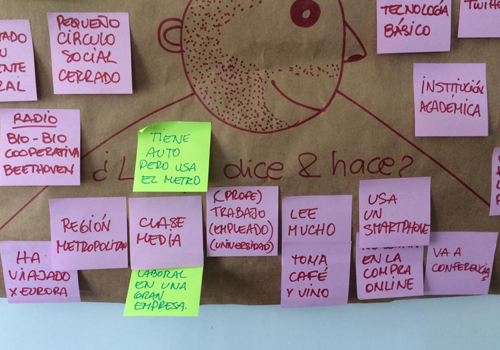 PEQUEÑO
CÍRCULO
SOCIAL
CERRADO
TECNOLOGÍA
BÁSICO
INSTITUCIÓN
ACADÉMICA
RADIO
BIO-BIO
COOPERATIVA
BEETHOVEN
TIENE
AUTO
PERO USA
EL METRO
¿L dice & hace?
REGIÓN
METROPOLITAN
CLASE
MEDIA
(PROFE)
TRABAJO
(EMPLEADO)
(UNIVERSIDAD)
LEE
MUCHO
USA
UN
SMARTPHONE
HA
VIAJADO
X EUROPA
LABORAL
EN UNA
GRAN
EMPRESA.
TOMA
CAFÉ
Y VINO
EN LA
COMPRA
ONLINE
VA A
CONFERENCIAS